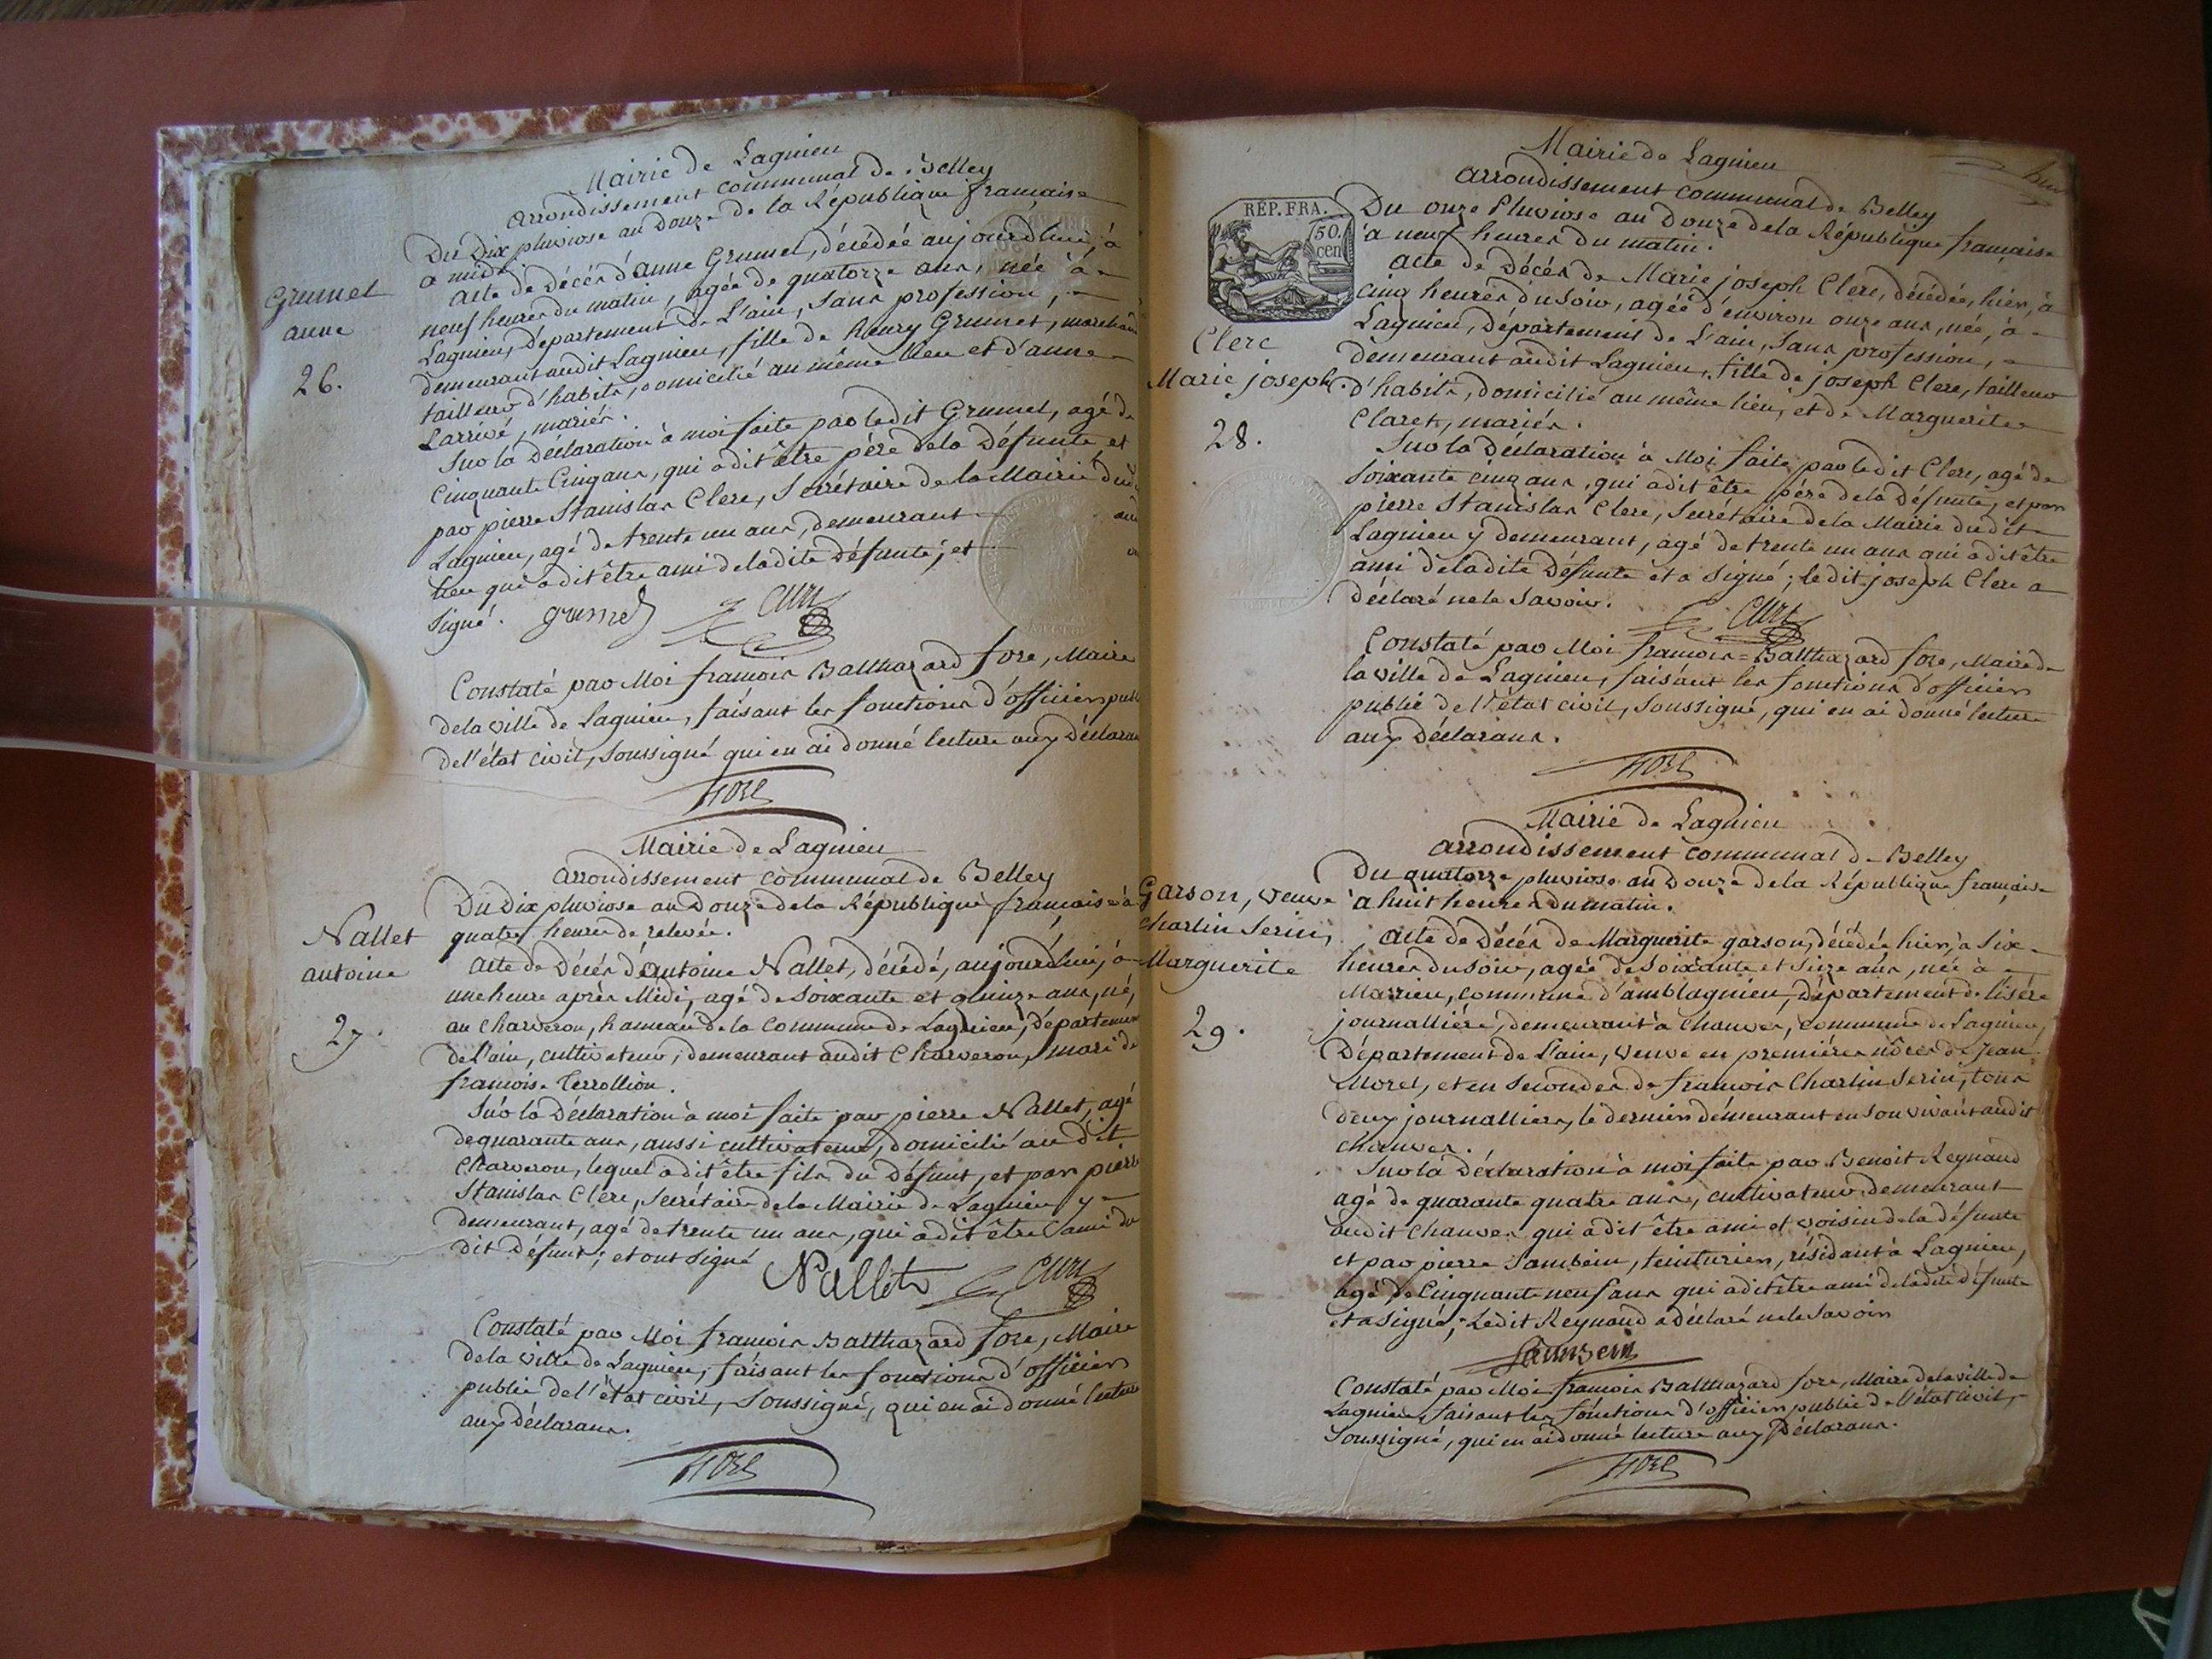 Mairie de Lagnieu
arrondissement communal de Belley
Du Dix pluviose an Douze de la République française
a midi
Grumet
anne
26.
acte de Décès d'anne Grumet, décédée aujourd'hui, à
neuf heures du matin, agée de quatorze ans, née à
Lagnieu, Département de L'ain, sans profession,
demeurant audit Lagnieu, fille de henry Grumet, marchand
tailleur d'habits, domicilié au même lieu et d'anne
Larrivé, mariés.
Sur la Déclaration à moi faite par ledit Grumet, agé de
Cinquante Cinq ans, qui a dit être père dela Défunte et
par pierre Stanislas Clerc, Secrétaire de la Mairie dud
Lagnieu, agé de trente un ans, demeurant au
lieu qui a dit être ami de ladite Défunte; et
signé. grumet Clerc
Constaté par Moi françois Balthazard fore, Maire
dela ville de Lagnieu, faisant les fonctions d'officier publ
de l'état civil, soussigné qui en ai donné lecture aux Déclaran
fore
Mairie de Lagnieu
arrondissement communal de Belley
Du Dix pluviose an Douze dela République française à
quatre heures de relevée.
Nallet
antoine
27.
acte de Décès d'Antoine Nallet, décédé, aujourd'hui, à
une heure après Midi, agé de soixante et quinze ans, né,
au Charveron, hameau de la Commune de Lagnieu, Départemen
de L'ain, cultivateur, demeurant audit Charveron, mari de
françoise Terrollion.
Sur la Déclaration à moi faite par pierre Nallet, agé
de quarante ans, aussi cultivateur, domicilié au dit
Charveron, lequel a dit être fils du Défunt, et par pierre
Stanislas Clerc, Secrétaire dela Mairie de Lagnieu y
demeurant, agé de trente un ans, qui a dit être ami du
dit Défunt; et ont signé Nallet Clerc
Constaté par Moi françois Balthazard fore, Maire
dela ville de Lagnieu, faisant les fonctions d'officier
public de l'état civil, soussigné, qui en ai donné lecture
aux déclarans.
fore
Mairie de Lagnieu
arrondissement communal de Belley
RÉP. FRA.
50.
cen.
Du onze Pluviose an Douze dela République française
à neuf heures du matin.
Clerc
Marie joseph.
28.
acte de Décès de Marie joseph Clerc, décédée, hier, à
cinq heures du soir, agée d'environ onze ans, née, à
Lagnieu, Département de L'ain, sans profession,
demeurant audit Lagnieu, fille de joseph Clerc, tailleur
d'habits, domicilié au même lieu, et de Marguerite
Claret, mariés.
Sur la Déclaration à Moi faite par ledit Clerc, agé de
soixante cinq ans, qui a dit être père dela Défunte, et par
pierre Stanislas Clerc, Secrétaire dela Mairie dudit
Lagnieu y demeurant, agé de trente un ans qui a dit être
ami deladite Défunte et a signé; ledit joseph Clerc a
Déclaré ne le savoir. Clerc
Constaté par Moi françois=Balthazard fore, Maire de
la ville de Lagnieu, faisant les fonctions d'officier
public de l'état civil, soussigné, qui en ai donné lecture
aux Déclarans.
fore
Mairie de Lagnieu
arrondissement communal de Belley
Du quatorze pluviose an Douze dela République française
à huit heures du matin.
Garson, veuve
Charlin Serin,
Marguerite
29.
acte de Décès de Marguerite garson, décédée hier, à Six
heures du soir, agée de soixante et seize ans, née à
Marrieu, commune d'amblagnieu, Département de l'isère
journallière, demeurant à Chanves, commune de Lagnieu,
Département de L'ain, veuve en premières nôces de Jean
Morel, et en secondes de françois Charlin Serin, tous
deux journalliers, le dernier demeurant en son vivant audit
Chanves.
Sur la Déclaration à moi faite par Benoit Reynaud
agé de quarante quatre ans, cultivateur demeurant
audit Chanves qui a dit être ami et voisin dela défunte
et par pierre Sambein, teinturier, résidant à Lagnieu,
agé de Cinquante neuf ans qui a dit être ami deladite défunte
et a signé; Ledit Reynaud a déclaré ne le savoir
Sambein
Constaté par Moi françois Balthazard fore, Maire dela ville de
Lagnieu, faisant les fonctions d'officier public de l'état civil,
soussigné, qui en ai donné lecture aux Déclarans.
fore